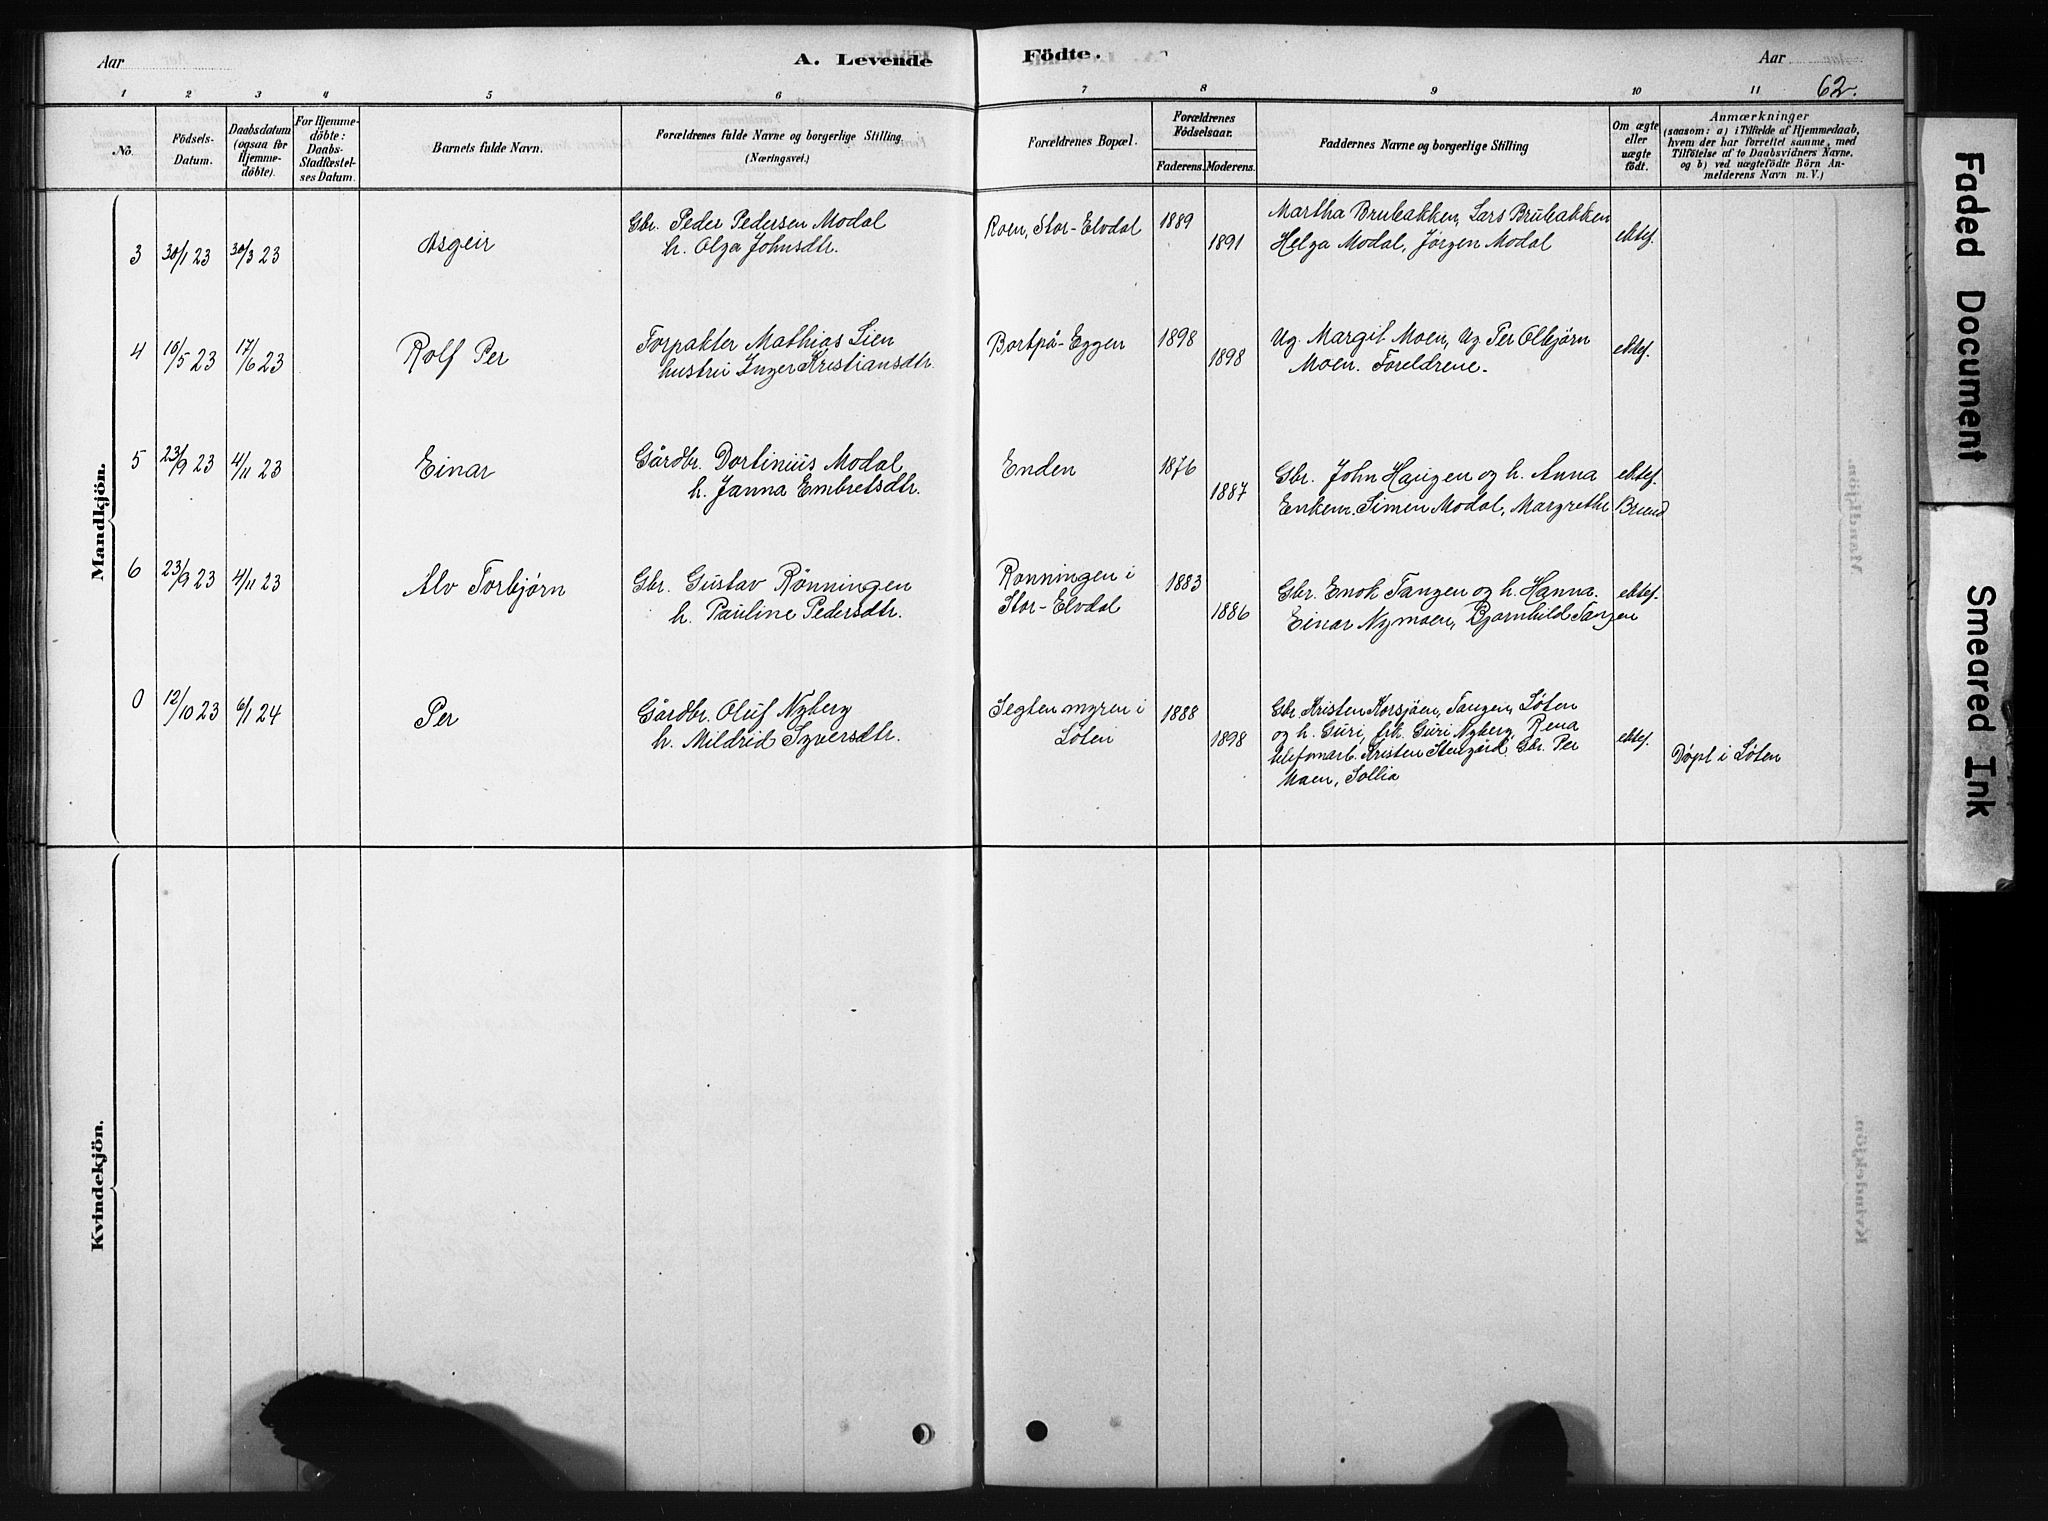 Aar
A. Levende
Födte.
Aar
62.
1 2 3 4 5 6 7 8 9 10 11
No.
Födsels-
Datum.
Daabsdatum
(ogsaa for
Hjemme-
döbte).
For Hjemme-
döbte:
Daabs-
Stadfæstel-
ses Datum.
Barnets fulde Navn.
Forældrenes fulde Navne og borgerlige Stilling.
(Næringsvei.)
Forældrenes Bopæl.
Forældrenes
Födselsaar.
Faderens. Moderens.
Faddernes Navne og borgerlige Stilling
Om ægte
eller
uægte
födt.
Anmærkninger
(saasom: a) i Tilfælde af Hjemmedaab,
hvem der har forrettet samme, med
Tilföielse af to Daabsvidners Navne,
og b) ved uægtefödte Börn An-
melderens Navn m. V.)
Mandkjön.
3
30/1 23
30/3 23
Asgeir
Gbr. Peder Pedersen Modal
h. Olga Johnsdtr.
Roen, Stor-Elvdal
1889
1891
Martha Brubakken, Lars Brubakken
Helga Modal, Jørgen Modal
ektef.
4
15/5 23
17/6 23
Rolf Per
Forpakter Mathias Lien
hustru Inger Kristiansdtr.
Bortpå-Eggen
1898
1898
Ug. Margit Moen, Ug. Per Olbjørn
Moen. Foreldrene.
ektef.
5
23/9 23
4/11 23
Einar
Gårdbr. Dortinius Modal
h. Janna Embretsdtr.
Enden
1876
1887
Gbr. John Haugen og h. Anna
Enkem. Simen Modal, Margrethe Brænd
ektef.
6
23/9 23
4/11 23
Alv Torbjørn
Gbr. Gustav Rønningen
h. Pauline Pedersdtr.
Rønningen i
Stor-Elvdal
1883
1886
Gbr. Enok Tangen og h. Hanna.
Einar Nymoen, Bjørnhild Tangen
ektef.
0
12/10 23
6/1 24
Per
Gårdbr. Oluf Nyberg
h. Mildrid Syversdtr.
Segtenmyren i
Løten
1888
1898
Gbr. Kristen Korsjøen, Tangen, Løten
og h. Guri, frk. Guri Nyberg, Rena
telefonarb. Kristen Stengård. Gbr. Per
Moen, Sollia
ektef.
Døpt i Løten
Kvindekjön.
Faded Document
Smeared Ink